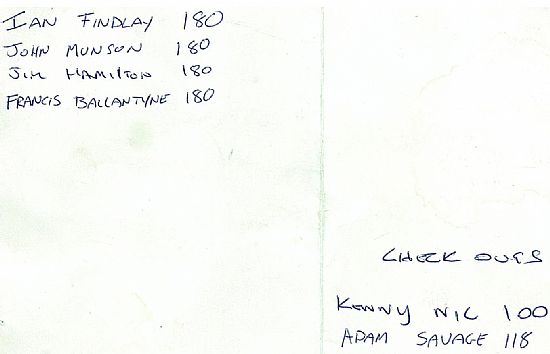 IAN FINDLAY 180
JOHN MUNSON 180
JIM HAMILTON 180
FRANCIS BALLANTYNE 180
CHECK OUTS
KENNY NIC 100
ADAM SAVAGE 118